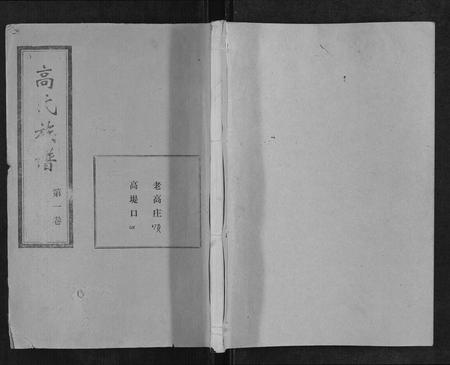 高氏族谱
第一卷
老高庄
高堤口